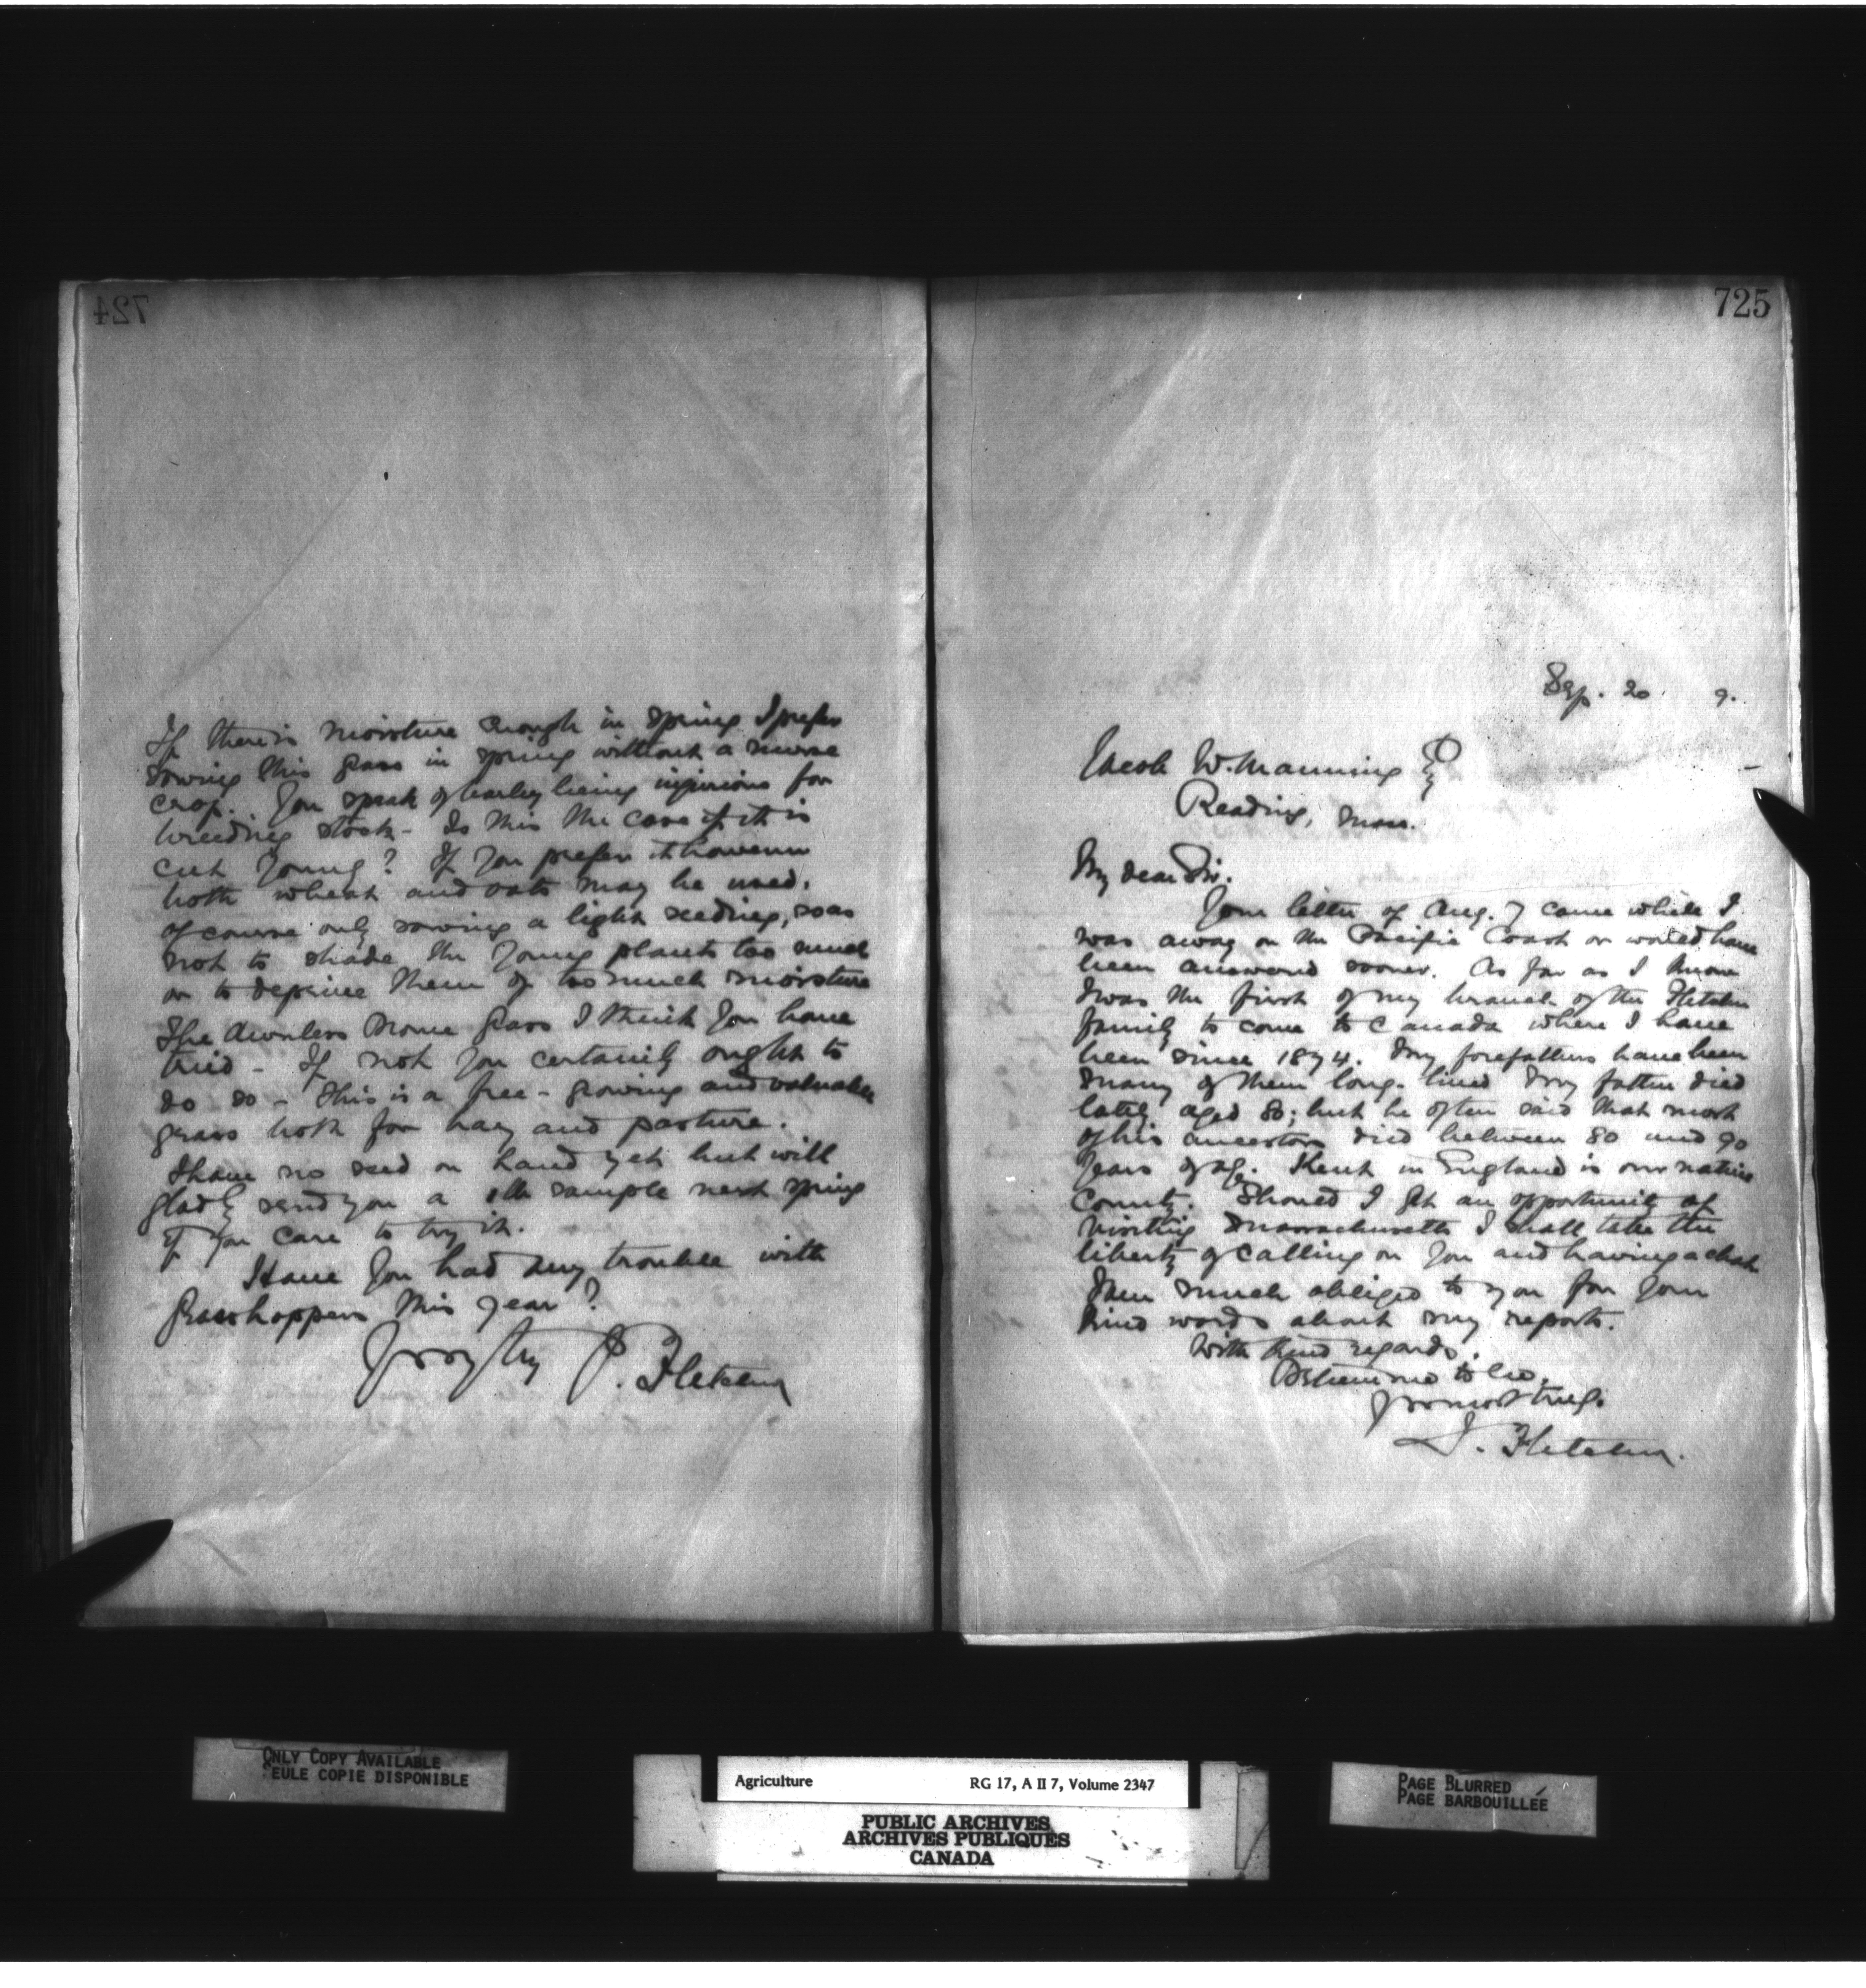 724
If there is moisture enough in spring I prefer
sowing this grass in spring without a nurse
crop. You speak of barley being injurious for
breeding stock - Is this the case if it is
cut young? If you prefer it however
both wheat and oats may be used.
of course only sowing a light seeding, so as
not to shade the young plants too much
or to deprive them of too much moisture
The Awnless Brome Grass I think you have
tried - If not you certainly ought to
do so - This is a free-growing and valuable
grass both for hay and pasture.
I have no seed on hand yet but will
gladly send you a lb sample next spring
if you care to try it.
Have you had any trouble with
Grasshoppers this year?
J. Fletcher
725
Sep. 20 9.
Jacob W. Manning
Reading, Mass.
My dear Sir.
Your letter of Aug. 7 came while I
was away on the Pacific Coast or would have
been answered sooner. As far as I know
I was the first of my branch of the Fletcher
family to come to Canada where I have
been since 1874. My forefathers have been
many of them long-lived My father died
lately aged 80; but he often said that most
of his ancestors died between 80 and 90
years of age. Kent in England is our native
County. Should I get an opportunity of
visiting Massachusetts I shall take the
liberty of calling on you and having a chat
I am much obliged to you for your
kind words about my reports.
With kind regards.
Believe me to be.
yours most truly.
J. Fletcher.
ONLY COPY AVAILABLE
SEULE COPIE DISPONIBLE
Agriculture RG 17, A II 7, Volume 2347
PUBLIC ARCHIVES
ARCHIVES PUBLIQUES
CANADA
PAGE BLURRED
PAGE BARBOUILLÉE